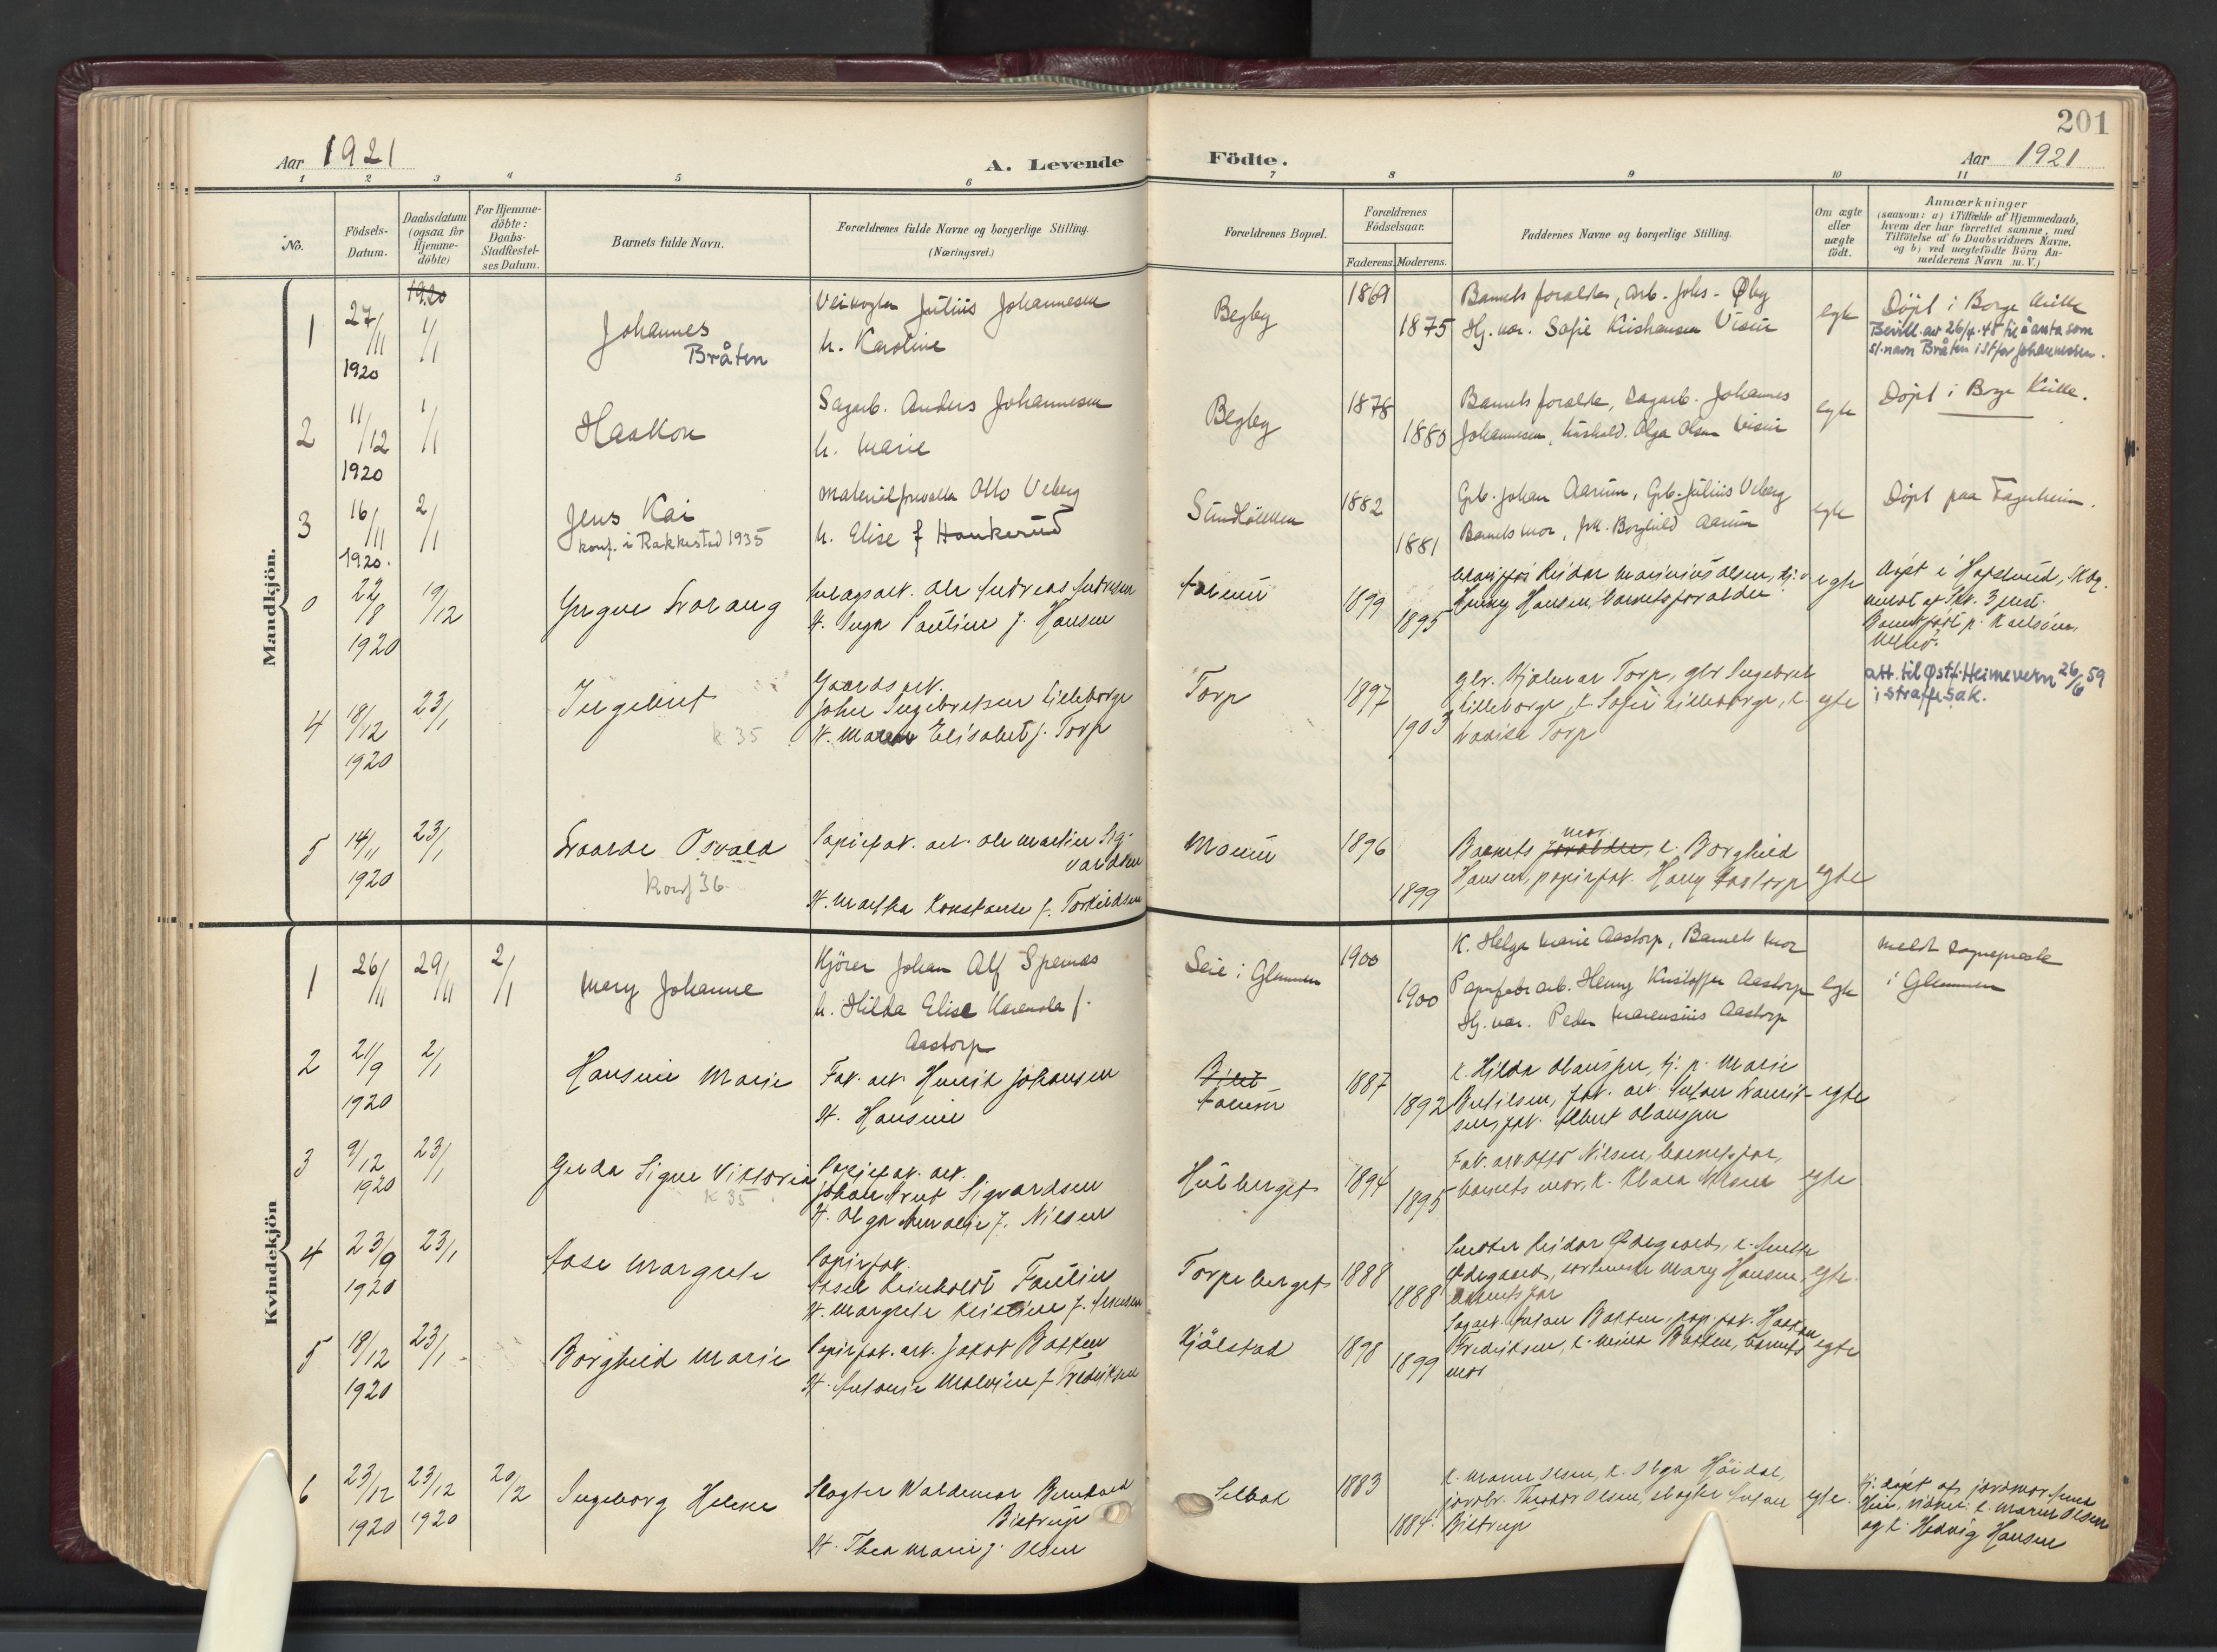 201
Aar 1921
A. Levende
Födte.
Aar 1921
1 2 3 4 5 6 7 8 9 10 11
No.
Födsels-
Datum.
Daabsdatum
(ogsaa for
Hjemme-
döbte)
For Hjemme-
döbte:
Daabs-
Stadfæstel-
ses Datum.
Barnets fulde Navn.
Forældrenes fulde Navne og borgerlige Stilling.
(Næringsvei.)
Forældrenes Bopæl.
Forældrenes
Födselsaar.
Faderens. Moderens.
Faddernes Navne og borgerlige Stilling.
Om ægte
eller
uægte
födt.
Anmærkninger
(saasom: a) i Tilfælde af Hjemmedaab,
hvem der har forrettet samme, med
Tilföielse af to Daabsvidners Navne,
og b) ved uægtefödte Börn An-
melderens Navn m. V.)
Mandkjön.
1920
1 27/11 1920 1/1
Johannes
Bråten
Julius Johannesen
h. Karoline
Begby
1869
1875
Barnets foreldre, Arb. Johs. Øby
Hj. vær. Sofie Kristiansen Visur
egte
Döpt i Borge Kirke
Bevill. av 26/4-45 til å anta som
sl.navn Bråten istfor Johannessen.
2 11/12 1920 1/1
Haakon
Sagarb. Anders Johannesen
h. Marie
Begby
1878
1880
Barnets forældre, Sagarb. Johannes
Johannesen, Olga Olsen Visur
egte
Döpt i Borge Kirke.
3 16/11 1920. 2/1
Jens Kai
konf. i Rakkestad 1935
Materialforvalter Otto Veberg
h. Elise f Hankerud
Sundlökken
1882
1881
Grb. Johan Aarum, Grb. Julius Veberg
Barnets mor, frk. Borghild Aarum
egte
Döpt paa Fagerheim.
0 22/8 1920 19/12
Yngve Svarang
Ole Andreas Andresen
H. Inga Pauline f. Hansen
1899
1895
Reidar Marinius Olsen, hj. v
Hansen, barnets forældre
egte
döpt i Hafslund, Skbg.
4 18/12 1920 23/1
Ingebret
k 35
Gaardsarb.
Johan Ingebretsen Lilleborge
H. Maren Elisabet f. Torp
Torp
1897
1903
gbr. Hjalmar Torp, gbr Ingebret
Lilleborge, k. Sofie Lilleborge, k.
Lovisa Torp
egte
att. til Østf. Heimevern 26/6 59
i straffesak.
5 14/11 1920 23/1
Svarde Osvald
Konf 36
Papirfab. arb. Ole Martin Sig-
vardsen
H. Martha Konstanse f. Torkildsen
Moum
1896
1899
Barnets forældre mor, k. Borghild
Hansen, papirfab. Harry Aastorp
egte
Kvindekjön
1 26/11 29/11 2/1
Mary Johanne
Kjörer Johan Alf Spernes
h. Hilda Elise f.
Aastorp
Seie i Glemmen
1900
1900
K. Helga Marie Aastorp, Barnets mor
Papirfabr arb. Henry Kristoffer Aastorp
Hj. vær. Peder Marensius Aastorp
egte
meldt sogneprest
i Glemmen
2 21/9 1920 2/1
Hansine Marie
Fab. arb. Henrik Johansen
H. Hansine
1887
1892
k. Hilda Olausen, hj. p. Marie
Bertilsen, fab. arb. Anton Laurit-
sen, fab. Albert Olausen
egte
3 9/12 1920 23/1
Gerda Signe Viktoria
K 35
Papirfab. arb.
Johan Arnt Sigvardsen
H. Olga Amalie f. Nilsen
Hulberget
1894
1895
Fab. arb Otto Nilsen, barnets far,
barnets mor, k. Klara Nilsen
egte
4 23/9 1920 23/1
Aase Margrete
Papirfab.
Aksel Reinholdt Paulin
H. Margrete Kristine f.
Torpeberget
1888
1888
Snedker Reidar Ødegaard, k. Anette
Ødegaard, Mary Hansen,
barnets far
egte
5 18/12 1920 23/1
Borghild Marie
Papirfab. arb. Jakob Bakken
H. Antonie Malvine f Fredriksen
Kjölstad
1898
1899
Sagarb. Anton Bakken, pap. fab. Haakon
Fredriksen, k. Bakken, barnets
mor
egte
6 23/12 1920 23/12 1920 20/2
Ingeborg Helene
Slagter Waldemar Bernhard
Bistrup
H. Thea Marie f. Olsen
Selbak
1883
1884.
k. Maren Olsen, k. Olga Höidal,
jordbr. Theodor Olsen, slagter Anton
Bistrup
egte.
Hj. döpt af jordmor Anna
k. Maren Olsen
og k. Hedvig Hansen